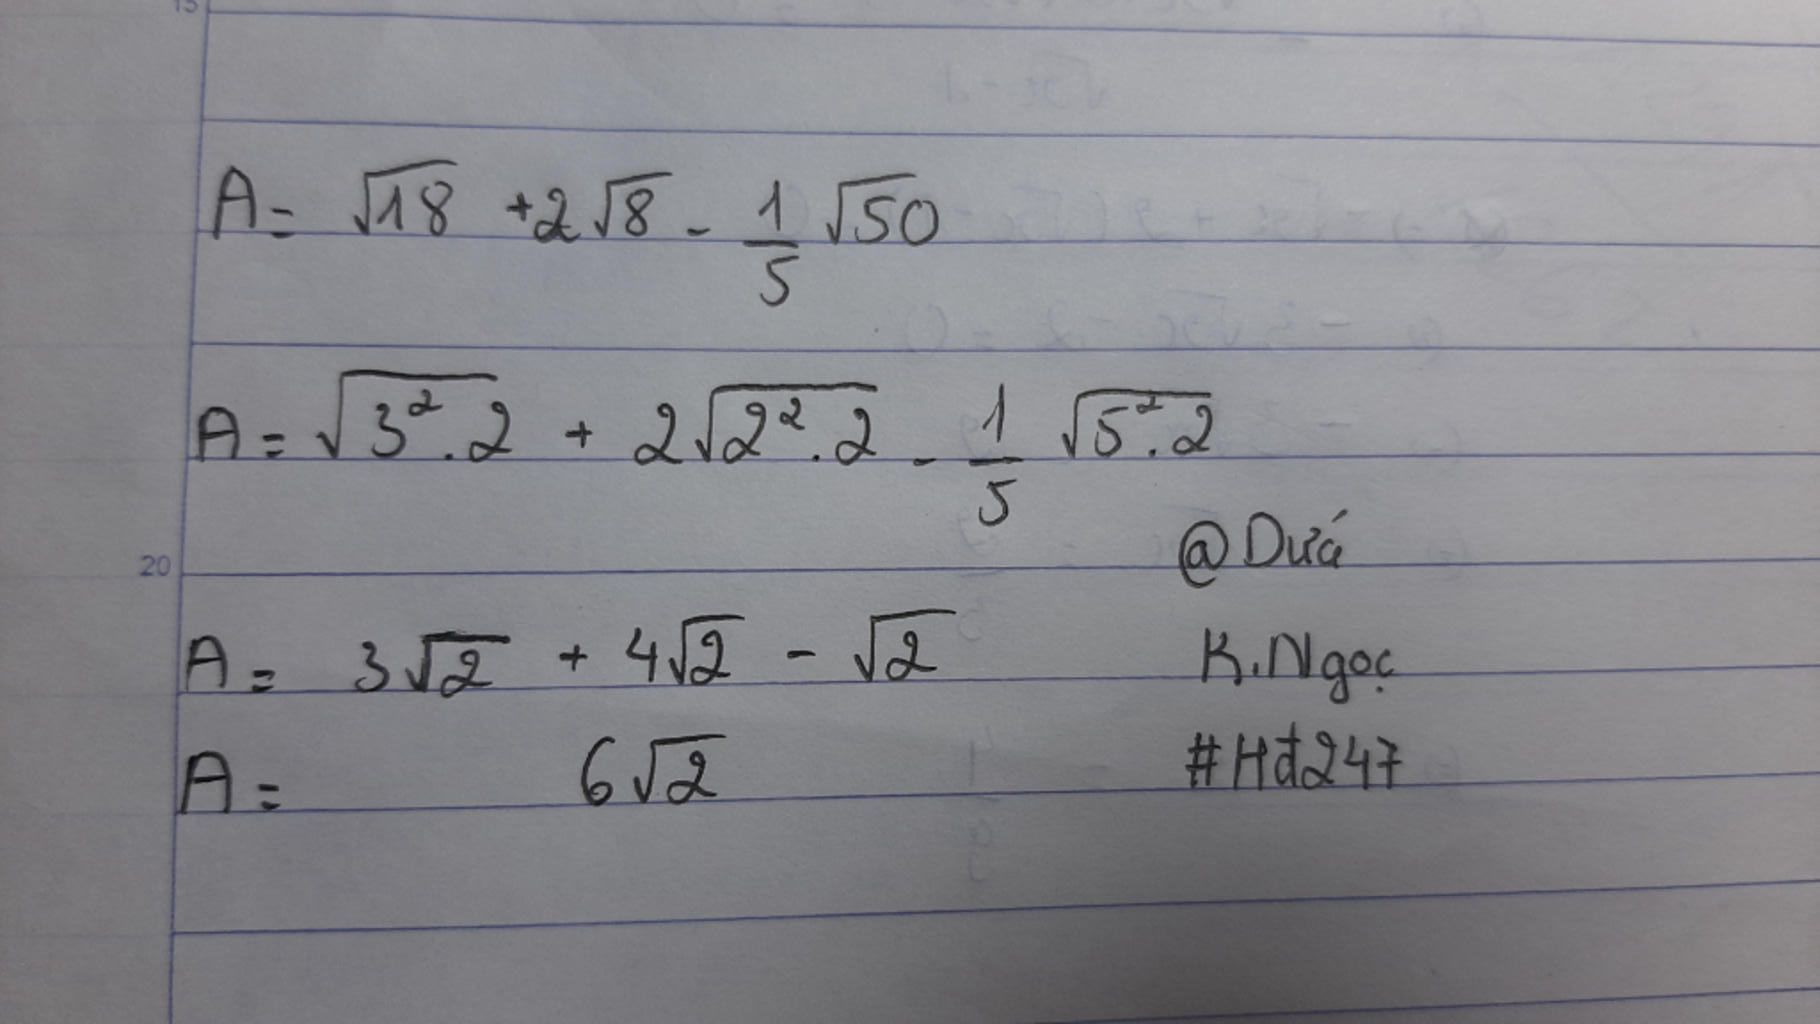 15
A = √18 + 2√8 - 1/5 √50
A = √(3².2) + 2√(2².2) - 1/5 √(5².2)
@Dứá
20
A = 3√2 + 4√2 - √2
K.Ngọc
A = 6√2
#Hđ247